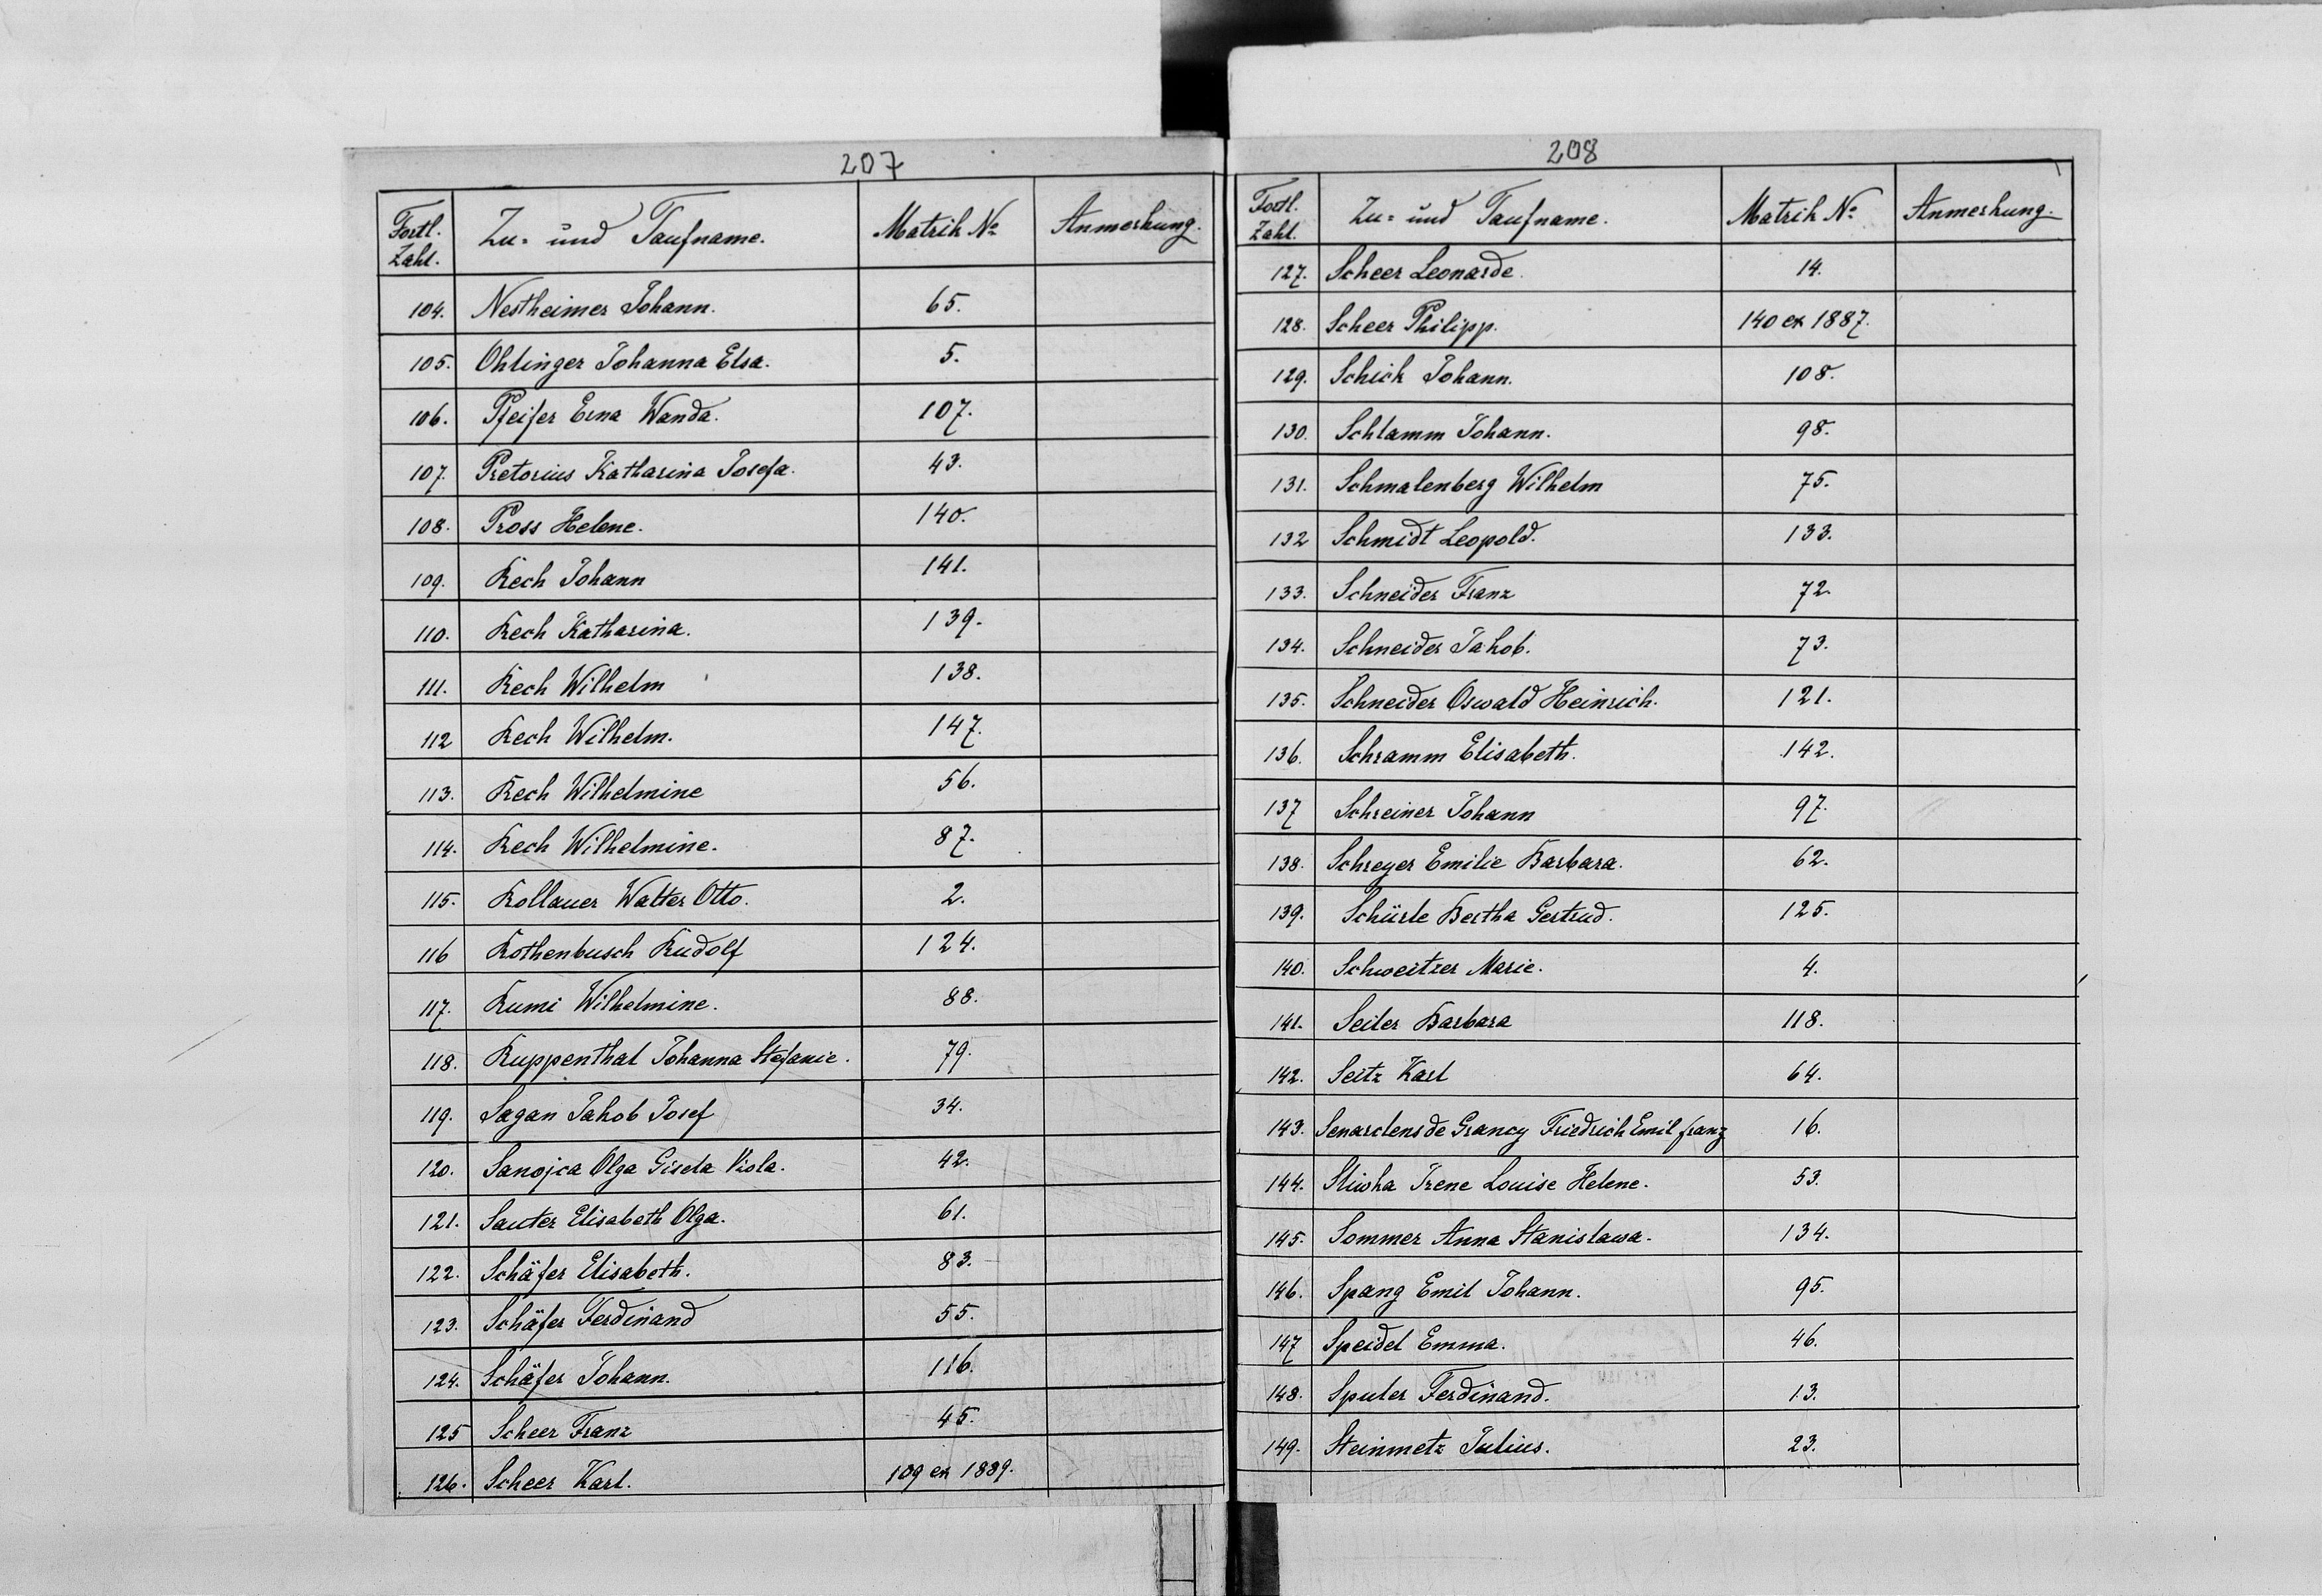 207
Fortl. Zahl. Zu- und Taufname. Matrik № Anmerkung.
104. Nestheimer Johann. 65.
105. Ohlinger Johanna Elsa. 5.
106. Pfeifer Erna Wanda. 107.
107. Pretorius Katharina Josefa. 43.
108. Pross Helene. 140.
109. Rech Johann 141.
110. Rech Katharina. 139.
111. Rech Wilhelm 138.
112 Rech Wilhelm. 147.
113. Rech Wilhelmine 56.
114. Rech Wilhelmine. 87.
115. Rollauer Walter Otto. 2.
116 Rothenbusch Rudolf 124.
117. Rumi Wilhelmine. 88.
118. Ruppenthal Johanna Stefanie. 79.
119. Sagan Jakob Josef 34.
120. Sanojca Olga Gisela Viola. 42.
121. Sauter Elisabeth Olga. 61.
122. Schäfer Elisabeth. 83.
123. Schäfer Ferdinand 55.
124. Schäfer Johann. 116.
125 Scheer Franz 45.
126. Scheer Karl. 109 ex 1889.
208
Fortl. Zahl. Zu- und Taufname. Matrik № Anmerkung.
127. Scheer Leonarde. 14.
128. Scheer Philipp. 140 ex 1887.
129. Schick Johann. 108.
130. Schlamm Johann. 98.
131. Schmalenberg Wilhelm 75.
132 Schmidt Leopold. 133.
133. Schneider Franz 72.
134. Schneider Jakob. 73.
135. Schneider Oswald Heinrich. 121.
136. Schramm Elisabeth. 142.
137 Schreiner Johann 97.
138. Schreyer Emilie Barbara. 62.
139. Schürle Bertha Gertrud. 125.
140. Schweitzer Marie. 4.
141. Seiler Barbara 118.
142. Seitz Karl 64.
143. Senarclens de Grancy Friedrich Emil franz 16.
144. Sliwka Irene Louise Helene. 53.
145. Sommer Anna Stanislawa. 134.
146. Spang Emil Johann. 95.
147 Speidel Emma. 46.
148. Spuler Ferdinand. 13.
149. Steinmetz Julius. 23.